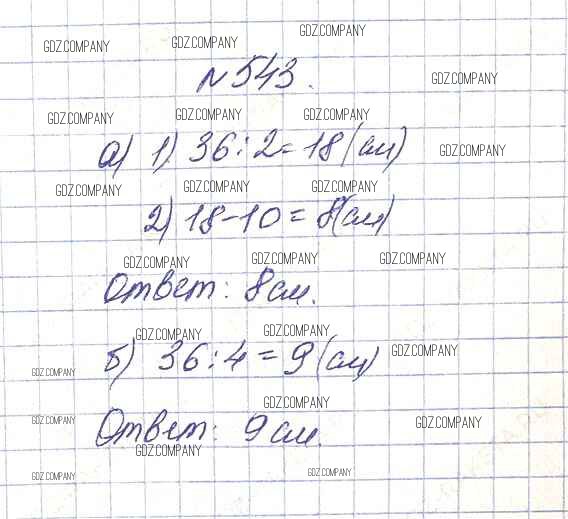 GDZ.COMPANY GDZ.COMPANY GDZ.COMPANY
№543.
GDZ.COMPANY
GDZ.COMPANY GDZ.COMPANY GDZ.COMPANY
а) 1) 36:2=18(см)
GDZ.COMPANY
GDZ.COMPANY GDZ.COMPANY GDZ.COMPANY
2) 18-10=8(см)
GDZ.COMPANY GDZ.COMPANY GDZ.COMPANY
Ответ: 8см.
GDZ.COMPANY GDZ.COMPANY
б) 36:4=9(см)
GDZ.COMPANY
GDZ.COMPANY
GDZ.COMPANY
GDZ.COMPANY
Ответ: 9см.
GDZ.COMPANY
GDZ.COMPANY
GDZ.COMPANY GDZ.COMPANY